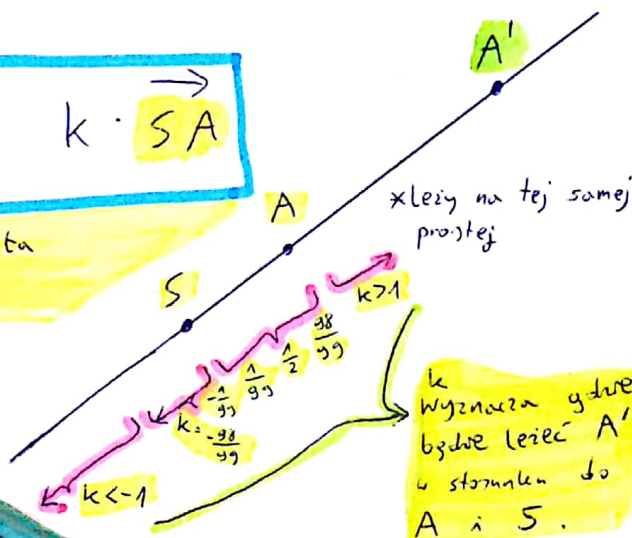 A'
k · SA
*leży na tej samej
prostej
ta
A
S
k>1
98/99
1/2
1/99
-1/99
k = -98/99
k<-1
k
wyznacza gdzie
będzie leżeć A'
w stosunku do
A i S.